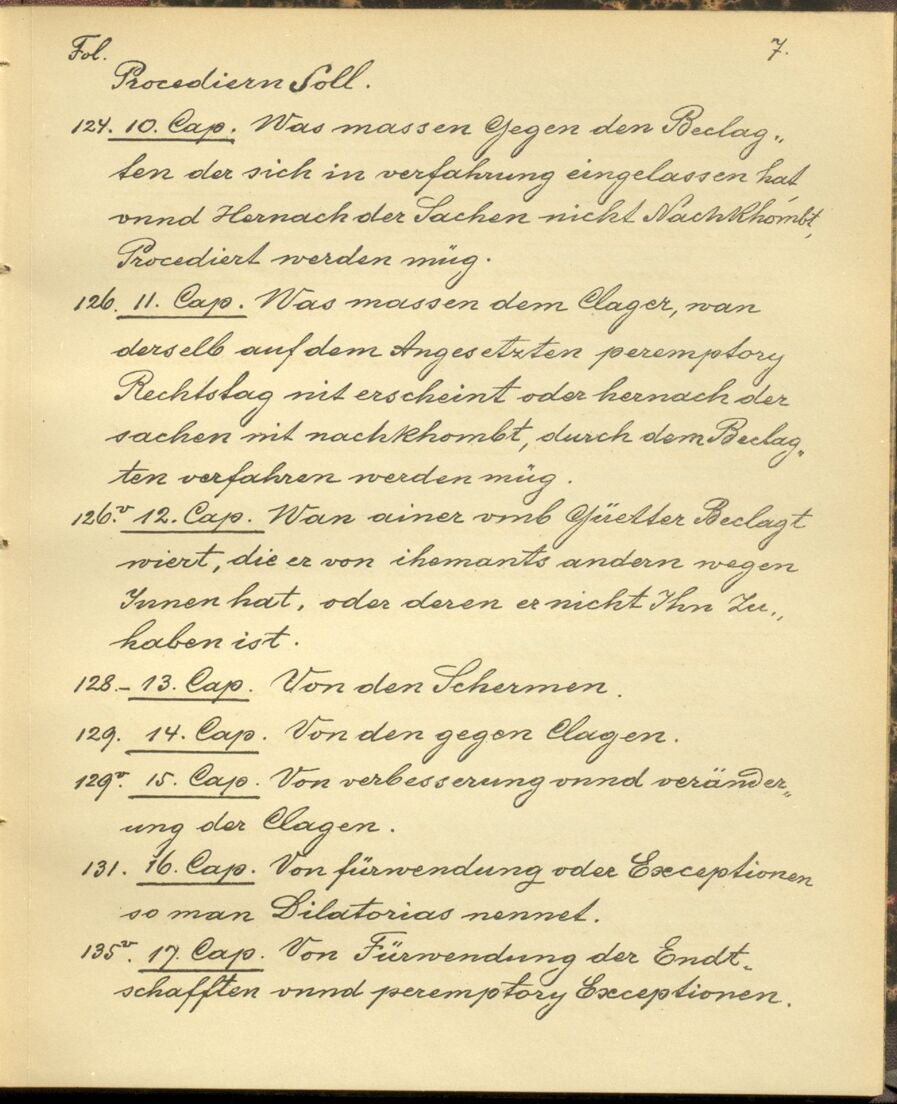 Fol. 7.
Procediern Soll.
124. 10. Cap. Was massen Gegen den Beclag„
ten der sich in verfahrung eingelassen hat
vnnd Hernach der Sachen nicht Nachkhombt,
Procediert werden müg.
126. 11. Cap. Was massen dem Clager, wan
derselb auf dem Angesetzten peremptory
Rechtstag nit erscheint oder hernach der
sachen nit nachkhombt, durch dem Beclag„
ten verfahren werden müg.
126.v 12. Cap. Wan ainer vmb Güetter Beclagt
wiert, die er von ihemants andern wegen
Innen hat, oder deren er nicht Ihn Zu„
haben ist.
128.- 13. Cap. Von den Schermen.
129. 14. Cap. Von den gegen Clagen.
129v. 15. Cap. Von verbesserung vnnd veränder„
ung der Clagen.
131. 16. Cap. Von fürwendung oder Exceptionen
so man Dilatorias nennet.
135v. 17. Cap. Von Fürwendung der Endt„
schafften vnnd peremptory Exceptionen.